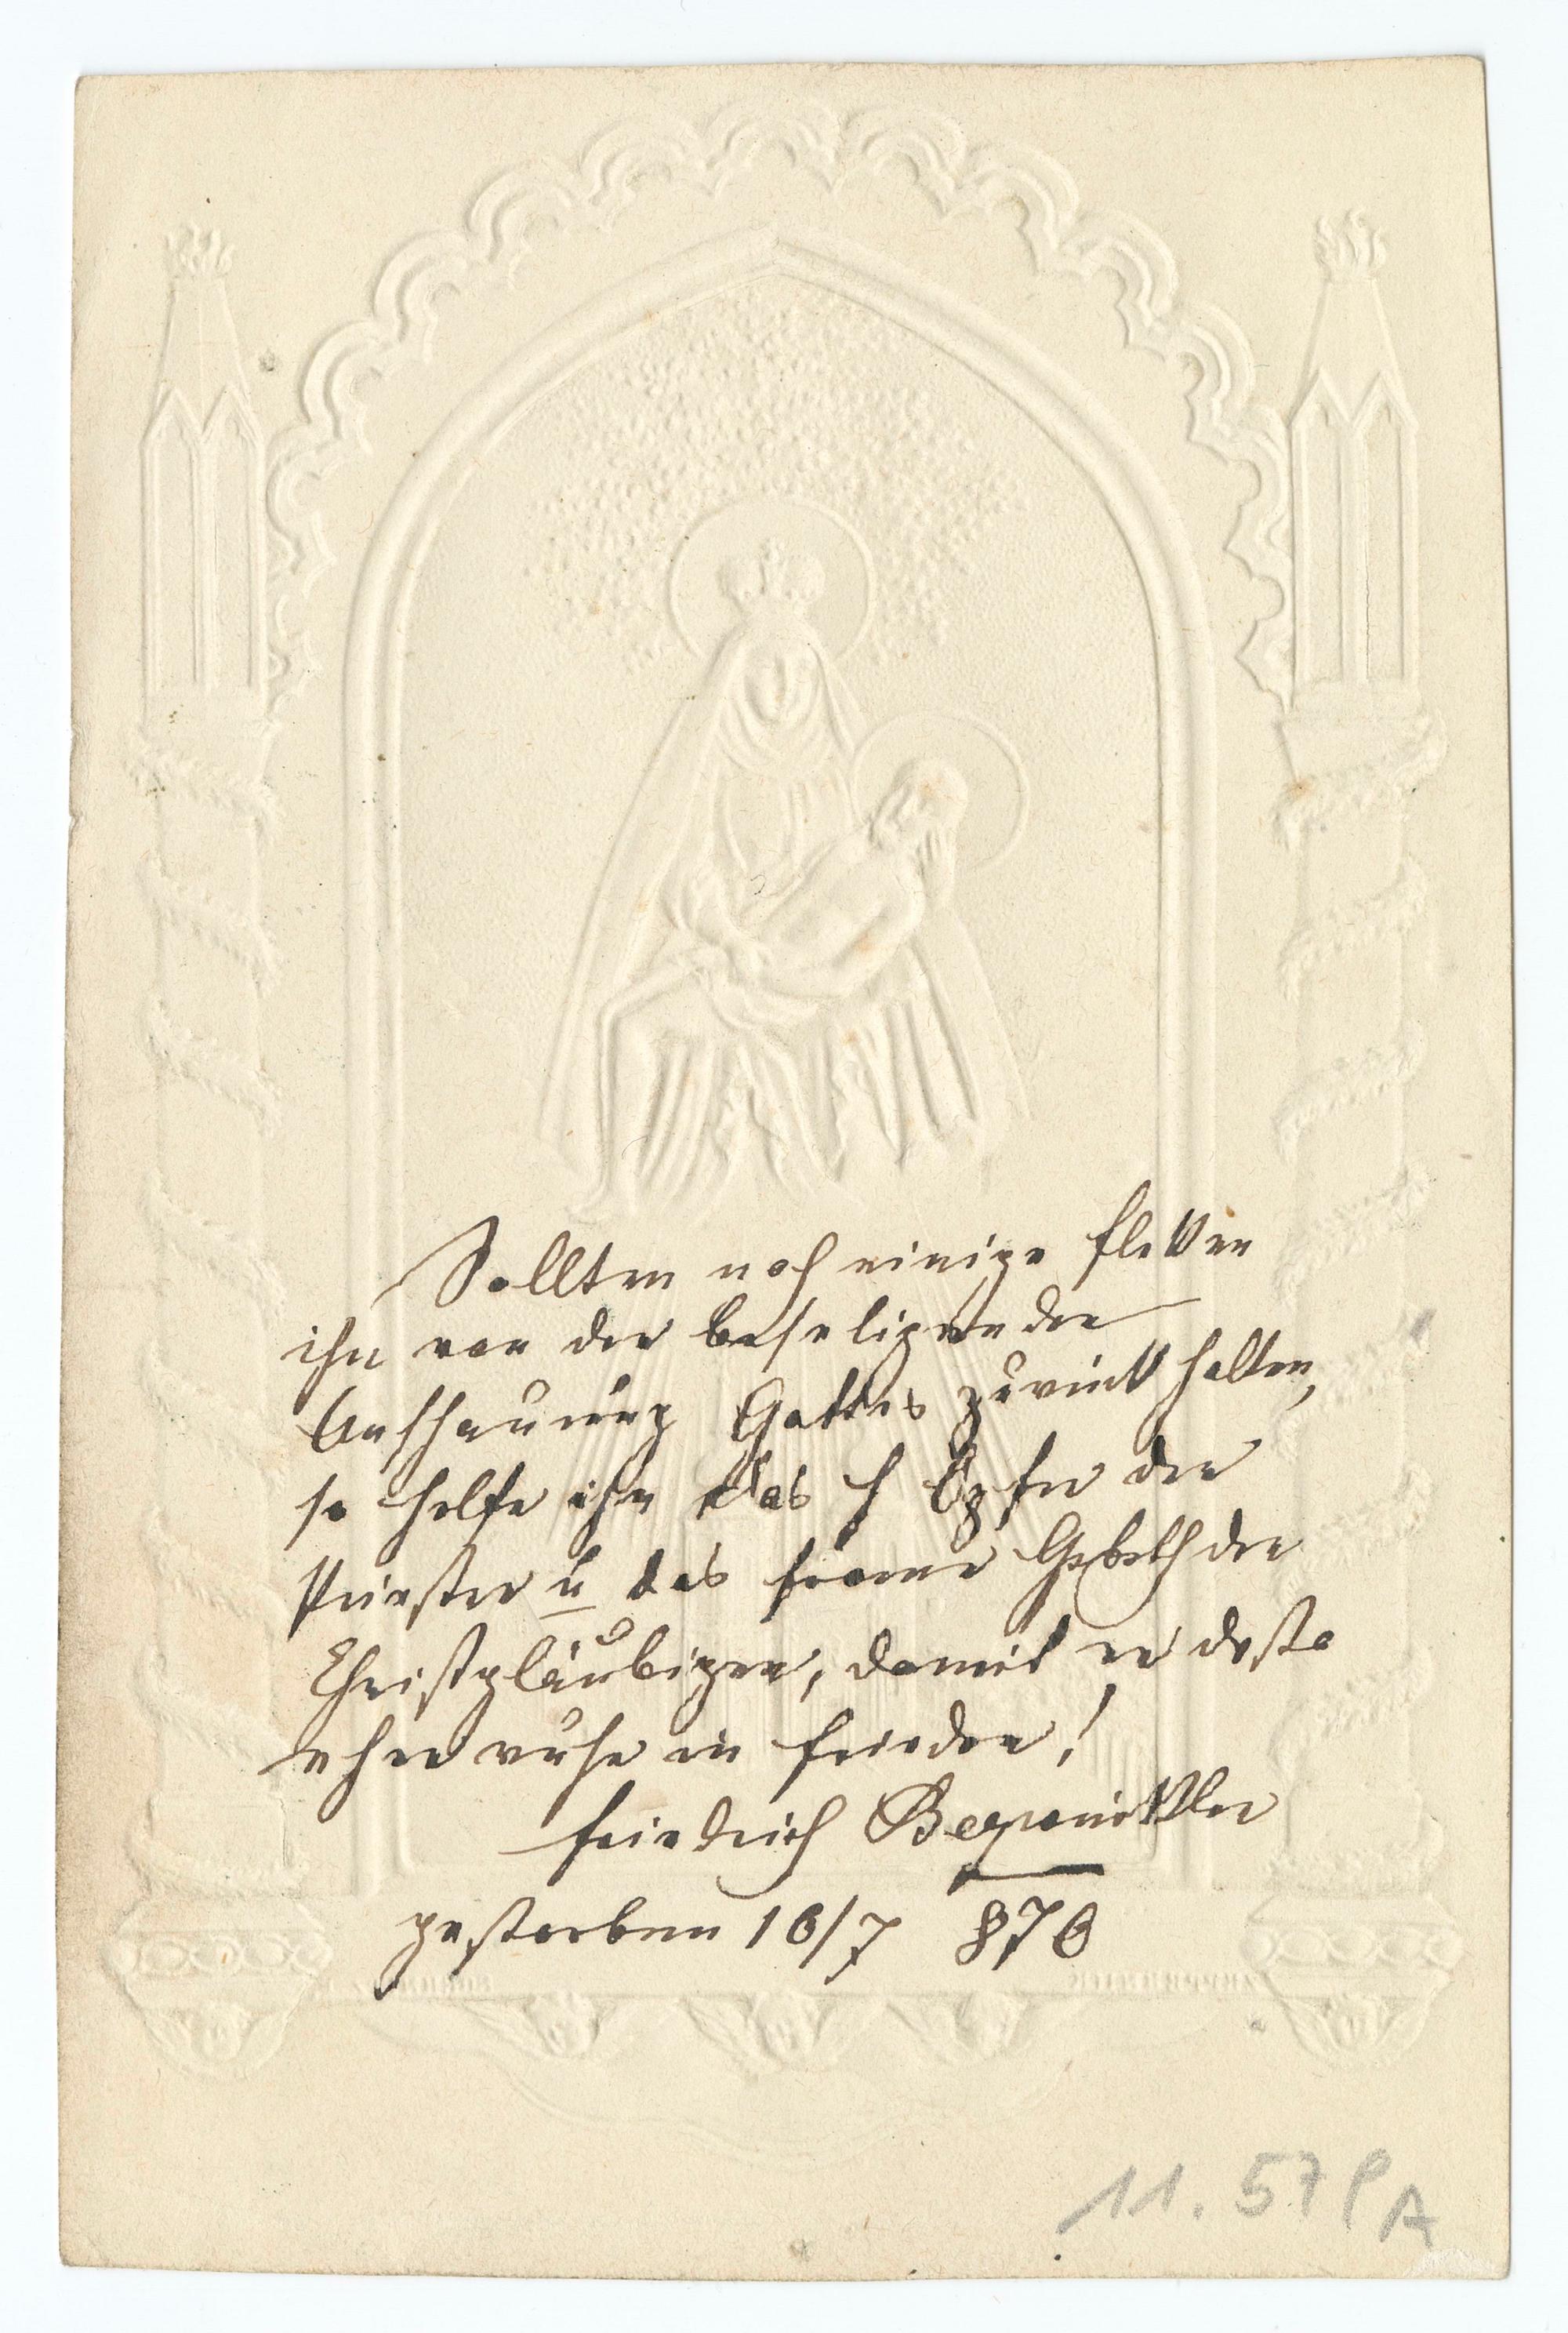 Sollten noch einige flekken
ihn von der beseligenden
Anschauung Gottes zurükk halten,
so helfe ihn das h Opfer der
Priester u das frome Gebeth der
Christgläubigen, damit er desto
eher ruhe in frieden!
friedrich
gestorben 16/7 876
11.57